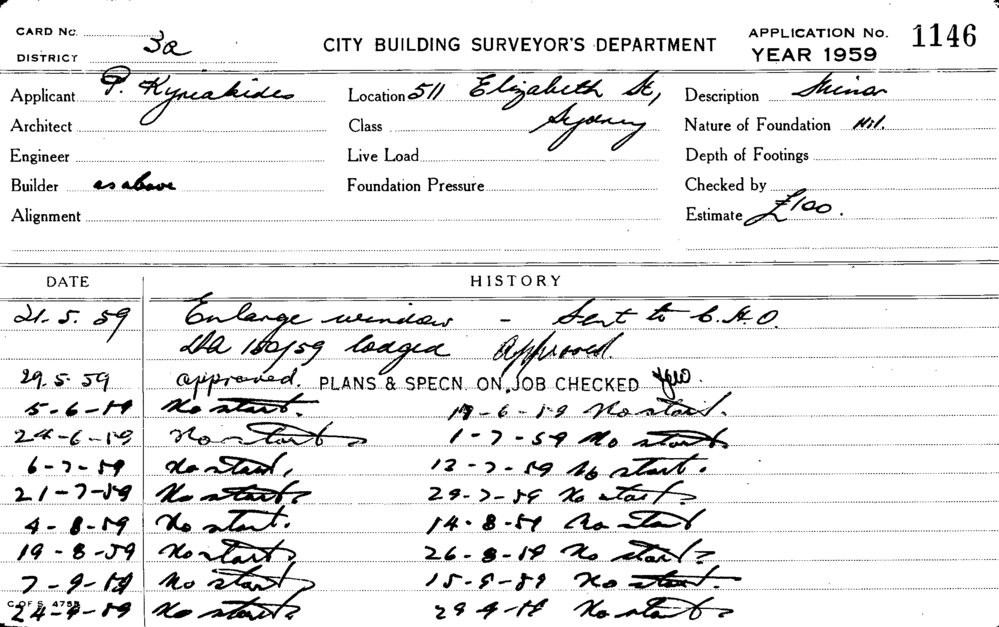 CARD No.
DISTRICT 3a
CITY BUILDING SURVEYOR'S DEPARTMENT
APPLICATION No. 1146
YEAR 1959
Applicant P. Kyriakides Location 511 Elizabeth St, Description Minor
Architect Class Sydney Nature of Foundation Nil.
Engineer Live Load Depth of Footings
Builder as above Foundation Pressure Checked by
Alignment Estimate £100.
DATE HISTORY
21. 5. 59 Enlarge window - Sent to C.H.O.
DA 150/59 lodged Approved
29. 5. 59 approved. PLANS & SPECN. ON JOB CHECKED
5-6-59 No start. 19-6-59 No start.
24-6-59 No start 1-7-59 No start
6-7-59 No start. 13-7-59 No start.
21-7-59 No start 29-7-59 No start
4-8-59 No start. 14-8-59 No start
19-8-59 No start 26-8-59 No start
7-9-59 No start 15-9-59 No start.
24-9-59 No start 29 9-59 No start